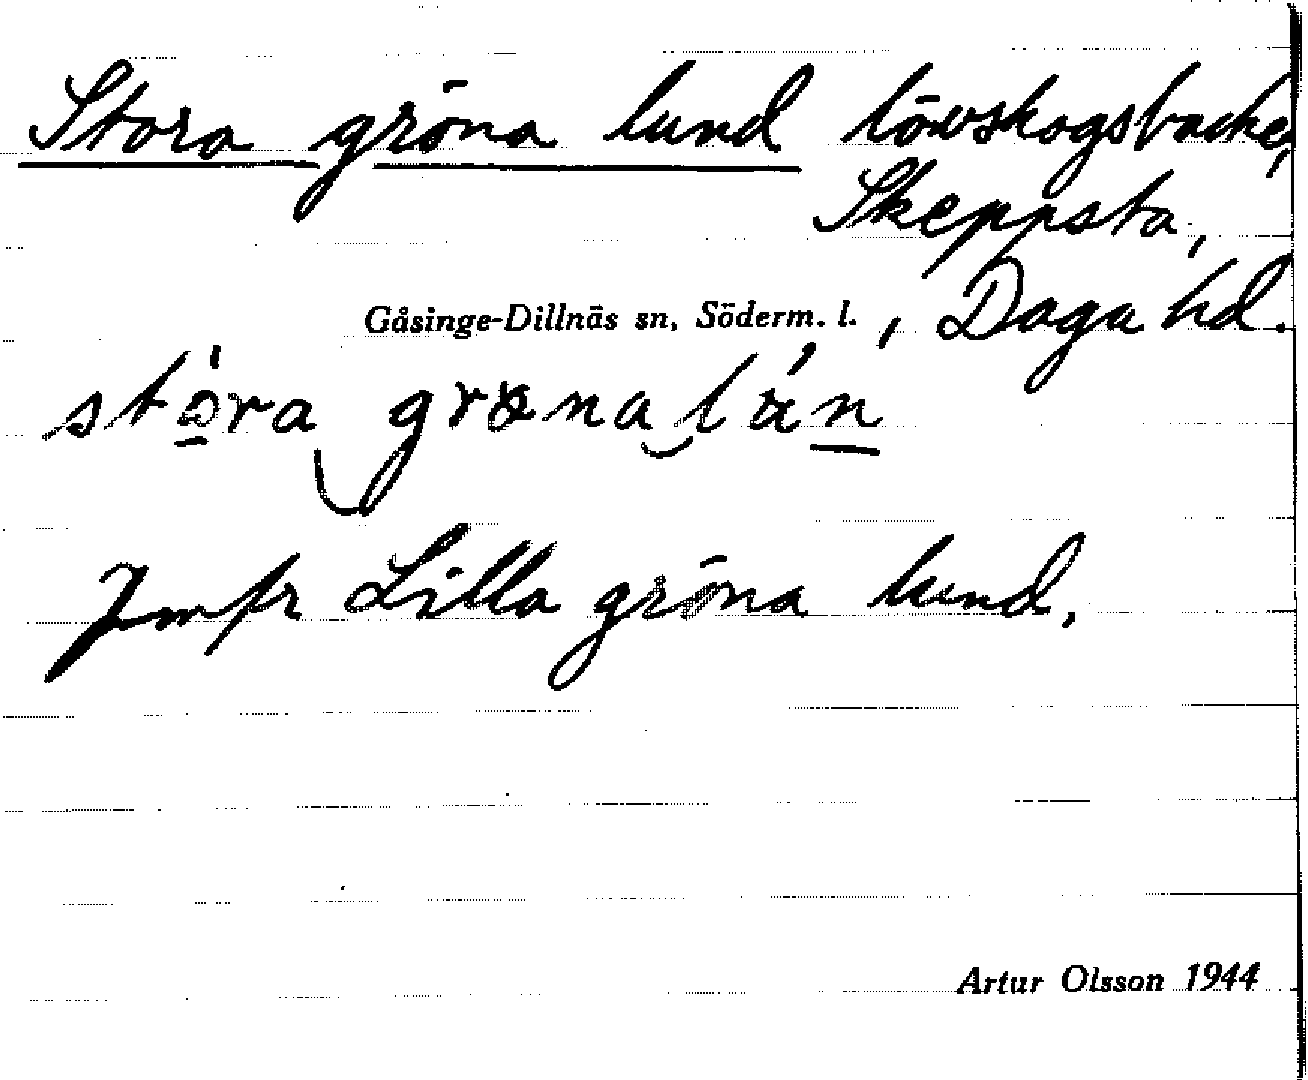 Stora gröna lund lövskogsbacke,
Skeppsta,
Gåsinge-Dillnäs sn, Söderm. l. , Daga hd.
Jmfr Lilla gröna lund.
Artur Olsson 1944